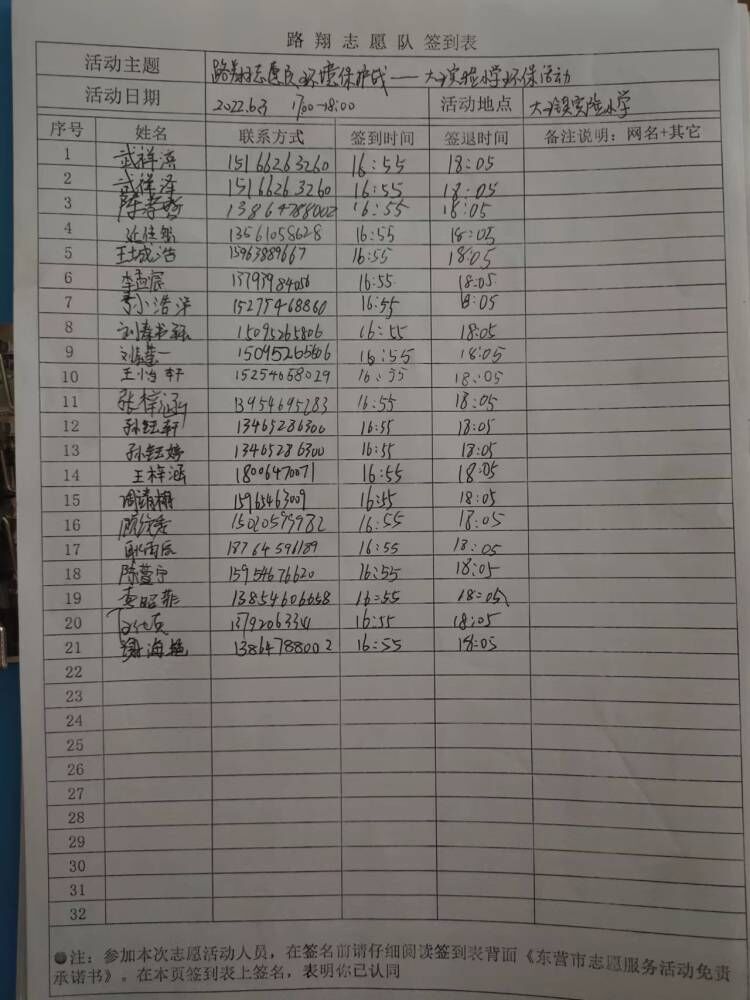 路翔志愿队 签到表
活动主题 路翔志愿队环境保护战——大王实验小学环保活动
活动日期 2022.6.3 17:00-18:00 活动地点 大王镇实验小学
序号 姓名 联系方式 签到时间 签退时间 备注说明：网名+其它
1 武祥 15166263260 16:55 18:05
2 武祥泽 15166263260 16:55 18:05
3 陈 13864788002 16:55 18:05
4 13561058628 16:55 18:05
5 王城浩 15963889667 16:55 18:05
6 李孟宸 13793984056 16:55 18:05
7 李小浩 15275468860 16:55 18:05
8 刘 15095265806 16:55 18:05
9 刘 一 16:55 18:05
10 王小 轩 15254658029 16:55 18:05
11 张梓涵 13954695283 16:55 18:05
12 孙钰轩 13465286300 16:55 18:05
13 孙钰婷 13465286300 16:55 18:05
14 王梓涵 18006470071 16:55 18:05
15 周靖 15965463009 16:55 18:05
16 16:55 18:05
17 耿丙辰 18764596189 16:55 18:05
18 陈萱宁 15954676620 16:55 18:05
19 李昭菲 13854606658 16:55 18:05
20 13792063341 16:55 18:05
21 谢海艳 13864788002 16:55 18:05
22
23
24
25
26
27
28
29
30
31
32
●注：参加本次志愿活动人员，在签名前请仔细阅读签到表背面《东营市志愿服务活动免责
承诺书》。在本页签到表上签名，表明你已认同